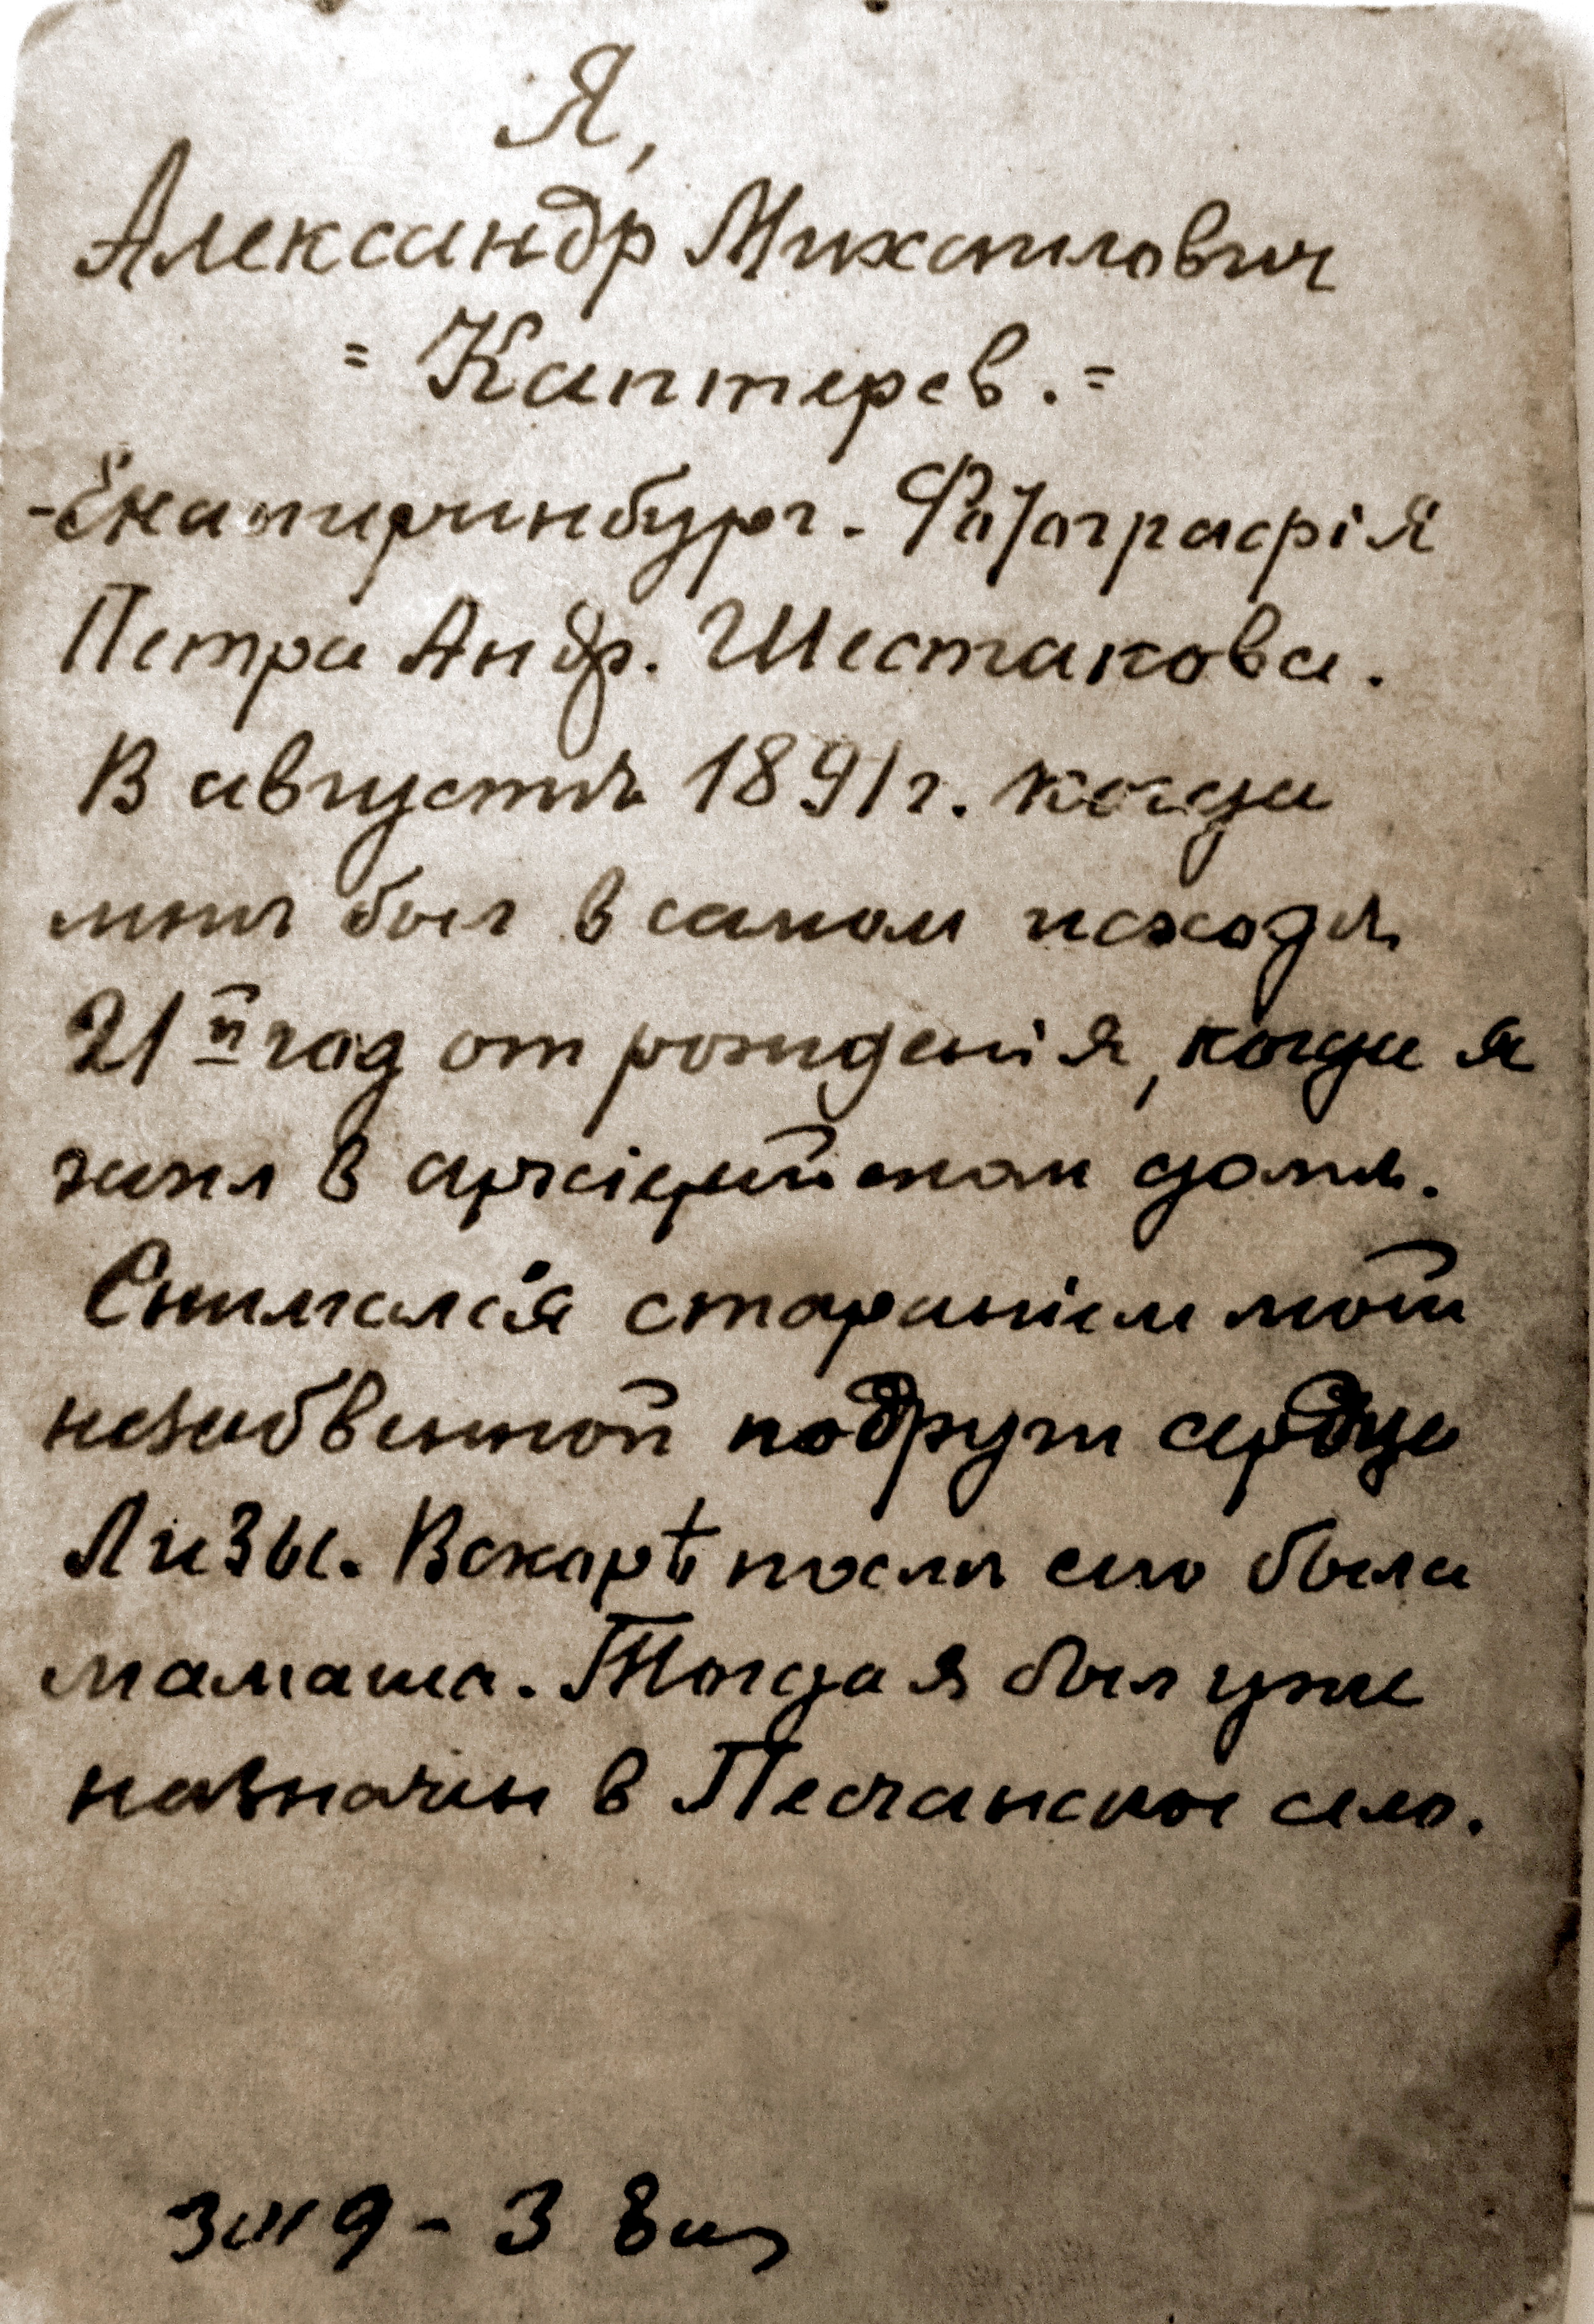 Я,
Александр Михаилович
= Каптерев. =
- Екатеринбург. Фотографія
Петра Андр. Шестакова.
В августѣ 1891 г. когда
мнѣ был в самом исходѣ
21й год от рожденія, когда я
жил в архіерейском домѣ.
Снимался стараніем моей
незабвенной подруги сердца
Лизы. Вскорѣ послѣ сего была
мамаша. Тогда я был уже
назначен в Песчанское село.
3 9 - 3